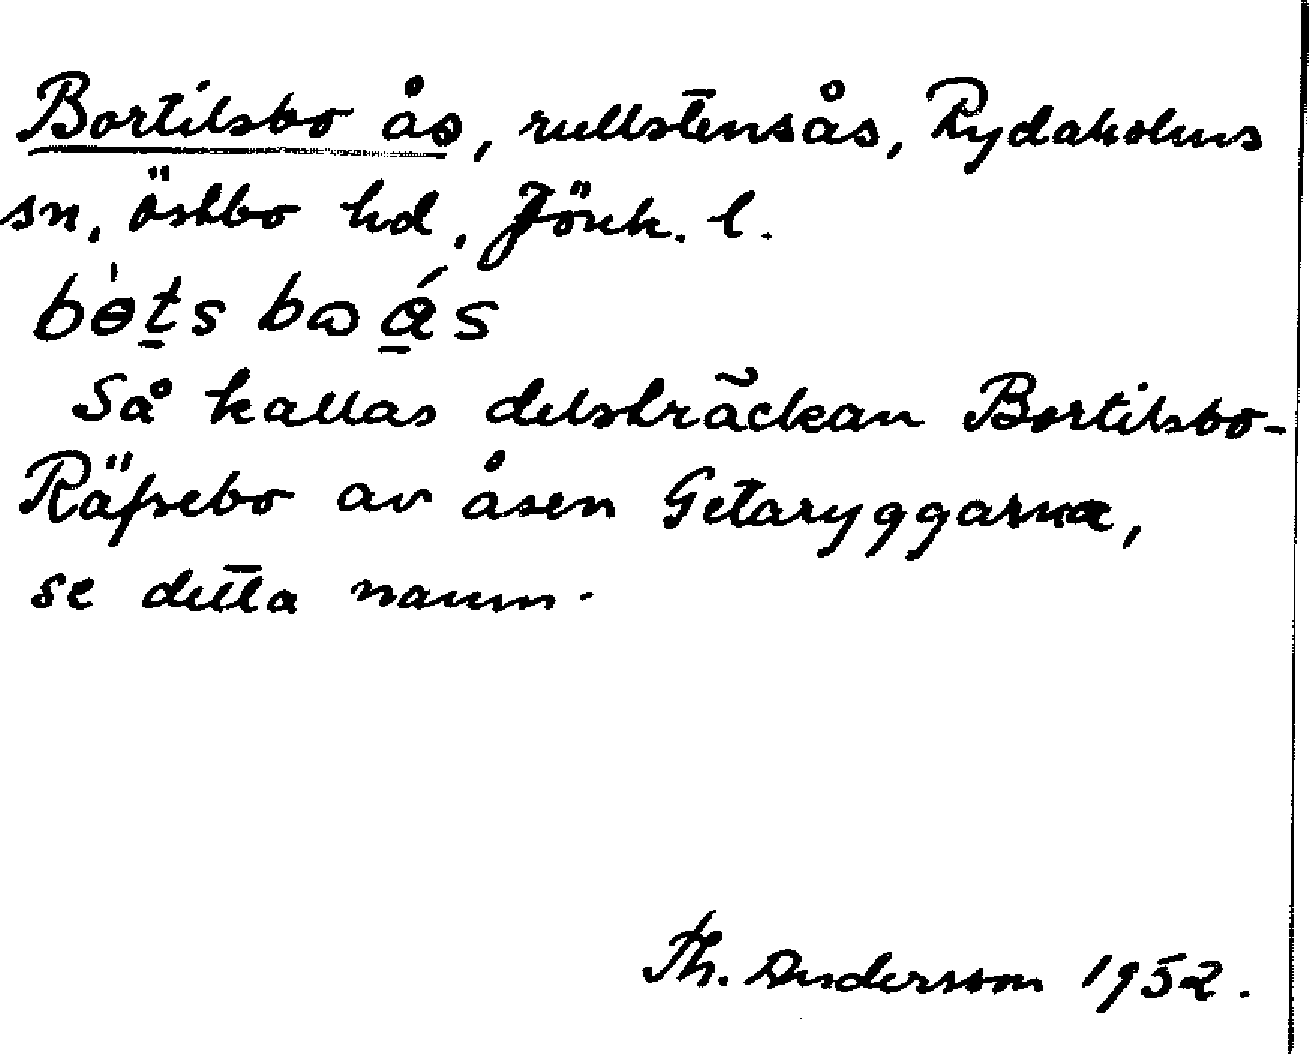 Bortilsbo ås, rullstensås, Rydaholms
sn, Östbo hd, Jönk. l.
bòts bɷ ás
Så kallas delsträckan Bortilsbo-
Räfsebo av åsen Getaryggarna,
se detta namn.
Th. Andersson 1952.